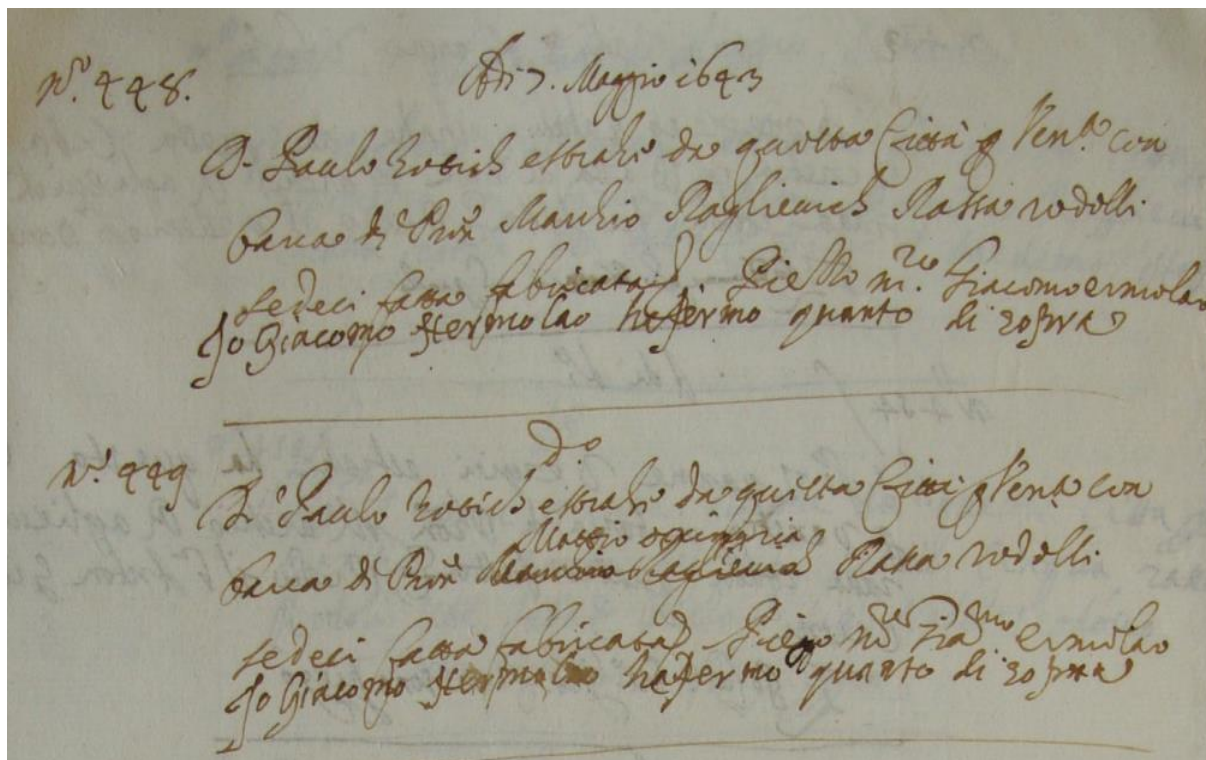 N.º 448.
Adi 7. Maggio 1643
D. Paulo Rosich estrahe da questa Città p Ven.ª con
barca di Prōn Marchio Raglievich Rassa rodolli
sedeci fatta fabricata p Piero m.ro Giacomo ermolao
Io Giacomo Hermolao hafermo quanto di sopra
N.º 449
D.º
D. Paulo Rosich estrahe da questa Città p Ven.ª con
Mattio
barca di Prōn Rassa rodolli
sedeci fatta fabricata p Piero m.ro Gia.mo ermolao
Io Giacomo Hermolao hafermo quanto di sopra